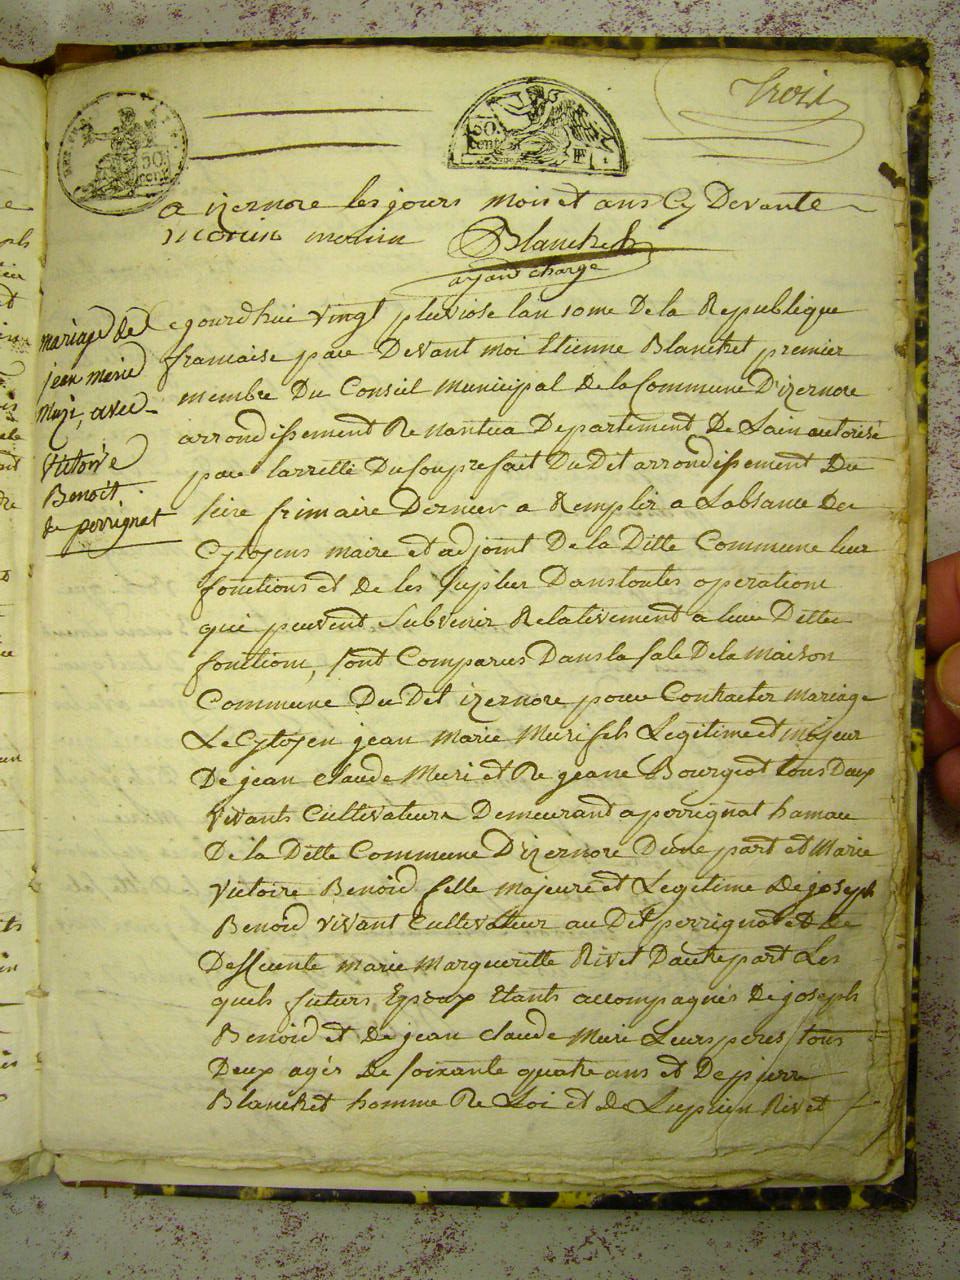 Trois
50 cent
50. cent
a izernore les jours mois et ans Cy Devants
morin Blanchet
ayant charge
mariage de
jean marie
Muzi, avec
Victoire
Benoit
de perrignat
Cejourdhui vingt pluviose lan 10me De la Republique
francaise par Devant moi Etienne Blanchet premier
membre Du Conseil municipal de la Commune D'izernore
arrondissement De nantua Departement De Lain autorisé
par larretté Du Souprefait Du Dit arrondissement Du
seize frimaire Dernier a Remplir a Labsance Des
Cytoyens maire et adjoint De la Ditte Commune leur
fonctions et de les suplier Dans toutes operations
qui peuvent Subvenir Relativement a leur Dittes
fonctions, sont Comparus Dans la sale De la maison
Commune Du Dit izernore pour Contracter mariage
Le Cytoyen jean marie Muri fils Legitime et majeur
De jean claude Muri et De jeane Bourgeot tous Deux
vivants Cultivateurs Demeurant a perrignat hamau
De la Ditte Commune D'izernore Dune part et Marie
victoire Benoid fille majeure et Legitime De joseph
Benoid vivant Cultivateur au Dit perrignat et de
Deffeunte marie margueritte Rivet Dautre part Les
quels futurs Epoux Etants accompagnés De joseph
Benoid et De jean claude Muri Leurs peres tous
Deux agés De soixante quatre ans et De pierre
Blanchet homme De Loi et de Lupicin Rivet